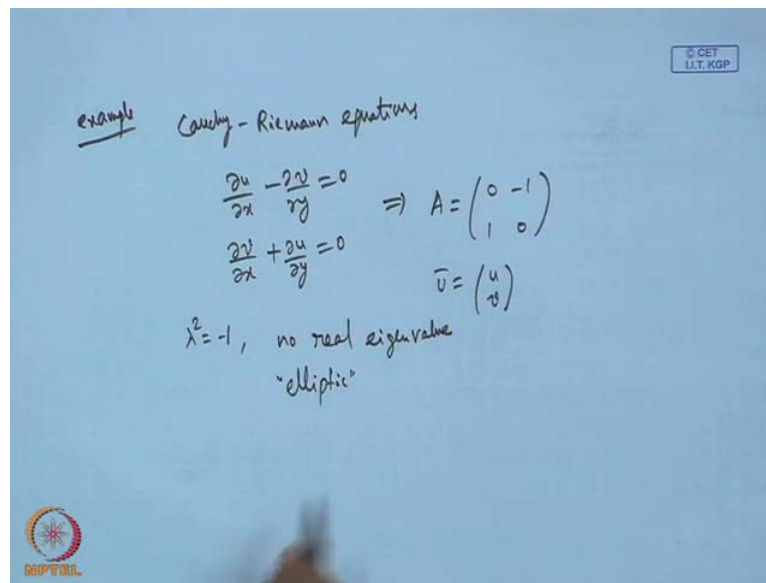 © CET
I.I.T. KGP
example Cauchy - Riemann equations
∂u/∂x - ∂v/∂y = 0
⇒ A = (0 -1; 1 0)
∂v/∂x + ∂u/∂y = 0
ū = (u; v)
λ² = -1, no real eigenvalue
"elliptic"
NPTEL